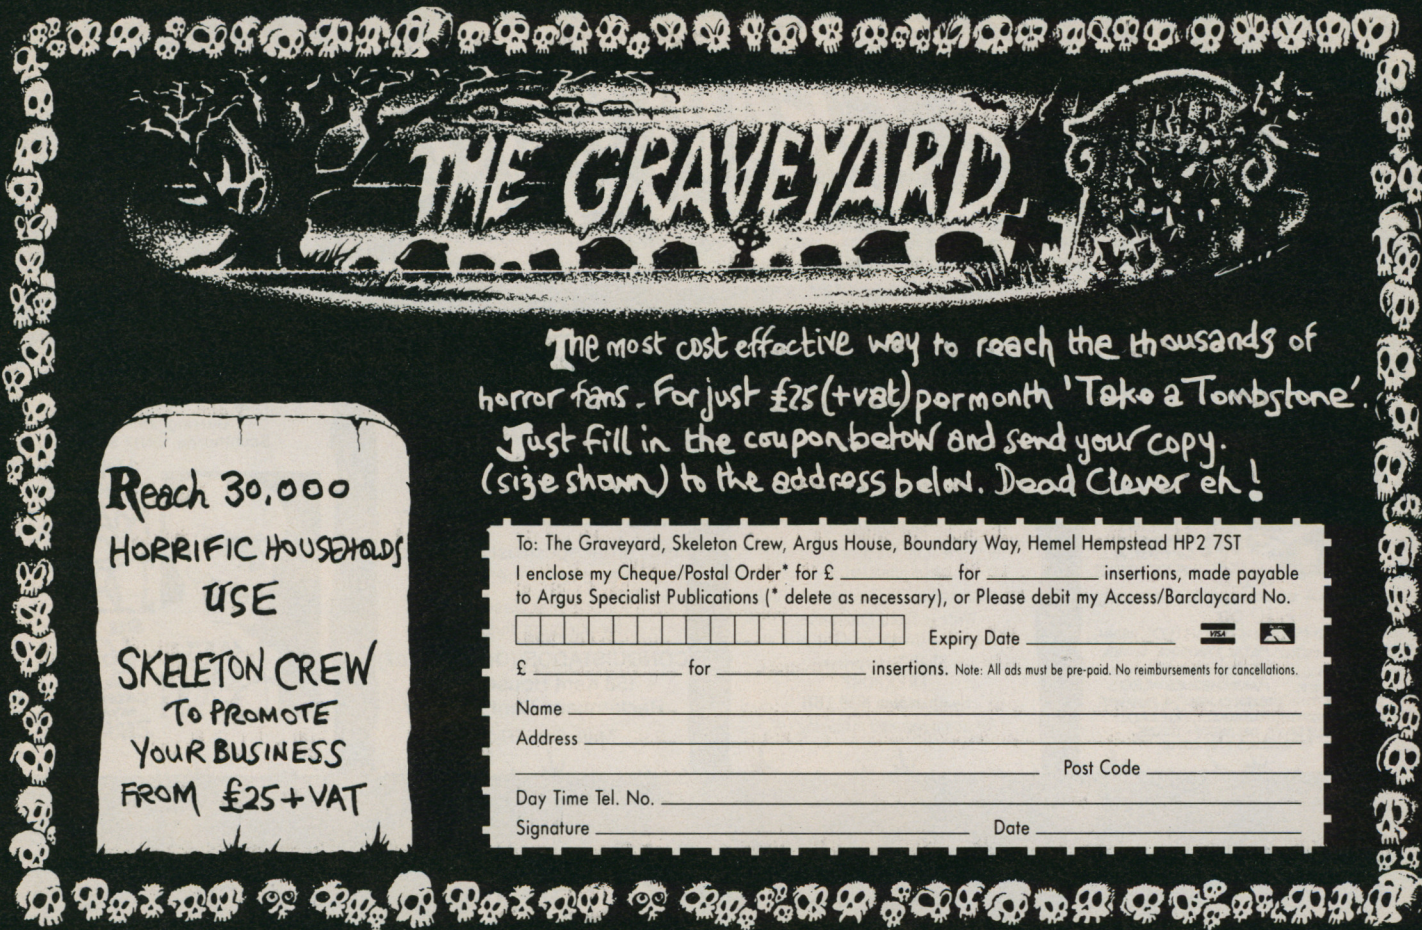 THE GRAVEYARD
The most cost effective way to reach the thousands of
horror fans. For just £25 (+vat) per month 'Take a Tombstone'.
Just fill in the coupon below and send your copy.
(size shown) to the address below. Dead Clever eh!
Reach 30,000
HORRIFIC HOUSEHOLDS
USE
SKELETON CREW
TO PROMOTE
YOUR BUSINESS
FROM £25+VAT
To: The Graveyard, Skeleton Crew, Argus House, Boundary Way, Hemel Hempstead HP2 7ST
I enclose my Cheque/Postal Order* for £ for insertions, made payable
to Argus Specialist Publications (* delete as necessary), or Please debit my Access/Barclaycard No.
Expiry Date VISA
£ for insertions. Note: All ads must be pre-paid. No reimbursements for cancellations.
Name
Address
Post Code
Day Time Tel. No.
Signature Date